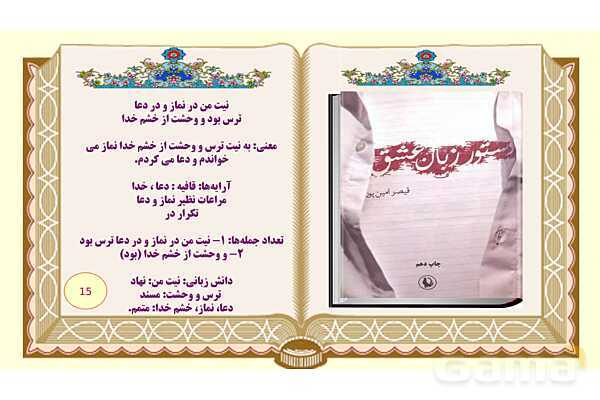 نیت من در نماز و در دعا
ترس بود و وحشت از خشم خدا
معنی: به نیت ترس و وحشت از خشم خدا نماز می
خواندم و دعا می کردم.
آرایه‌ها: قافیه : دعا ، خدا
مراعات نظیر نماز و دعا
تکرار در
تعداد جمله‌ها: ۱- نیت من در نماز و در دعا ترس بود
۲- و وحشت از خشم خدا (بود)
دانش زبانی: نیت من: نهاد
ترس و وحشت: مسند
دعا، نماز، خشم خدا: متمم.
15
دستور زبان عشق
قیصر امین‌پور
چاپ دهم
Gama